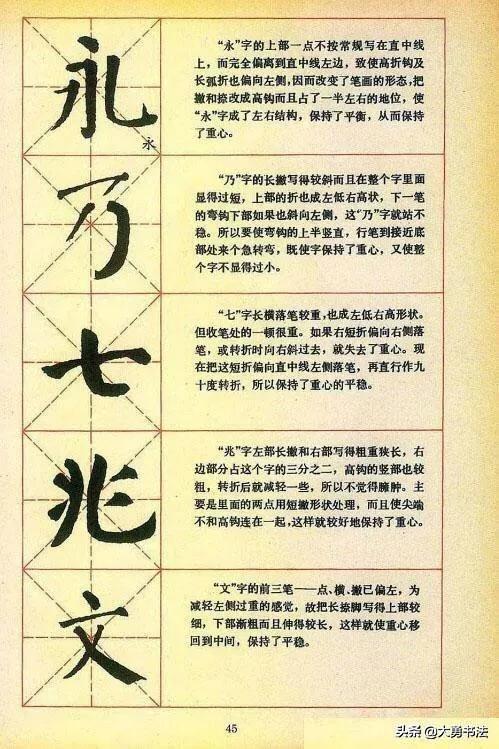 永
永
“永”字的上部一点不按常规写在直中线
上，而完全偏离到直中线左边，致使高折钩及
长弧折也偏向左侧，因而改变了笔画的形态，把
撇和捺改成高钩而且占了一半左右的地位，使
“永”字成了左右结构，保持了平衡，从而保持
了重心。
乃
“乃”字的长撇写得较斜而且在整个字里面
显得过短，上部的折也成左低右高状，下一笔
的弯钩下部如果也斜向左侧，这“乃”字就站不
稳。所以要使弯钩的上半竖直，行笔到接近底
部处来个急转弯，既使字保持了重心，又使整
个字不显得过小。
七
“七”字长横落笔较重，也成左低右高形状。
但收笔处的一顿很重。如果右短折偏向右侧落
笔，或转折时向右斜过去，就失去了重心。现
在把这短折偏向直中线左侧落笔，再直行作九
十度转折，所以保持了重心的平稳。
兆
“兆”字左部长撇和右部写得粗重狭长，右
边部分占这个字的三分之二，高钩的竖部也较
粗，转折后就减轻一些，所以不觉得臃肿。主
要是里面的两点用短撇形状处理，而且使尖端
不和高钩连在一起，这样就较好地保持了重心。
文
“文”字的前三笔——点、横、撇已偏左，为
减轻左侧过重的感觉，故把长捺脚写得上部较
细，下部渐粗而且伸得较长，这样就使重心移
回到中间，保持了平稳。
45
头条@大勇书法